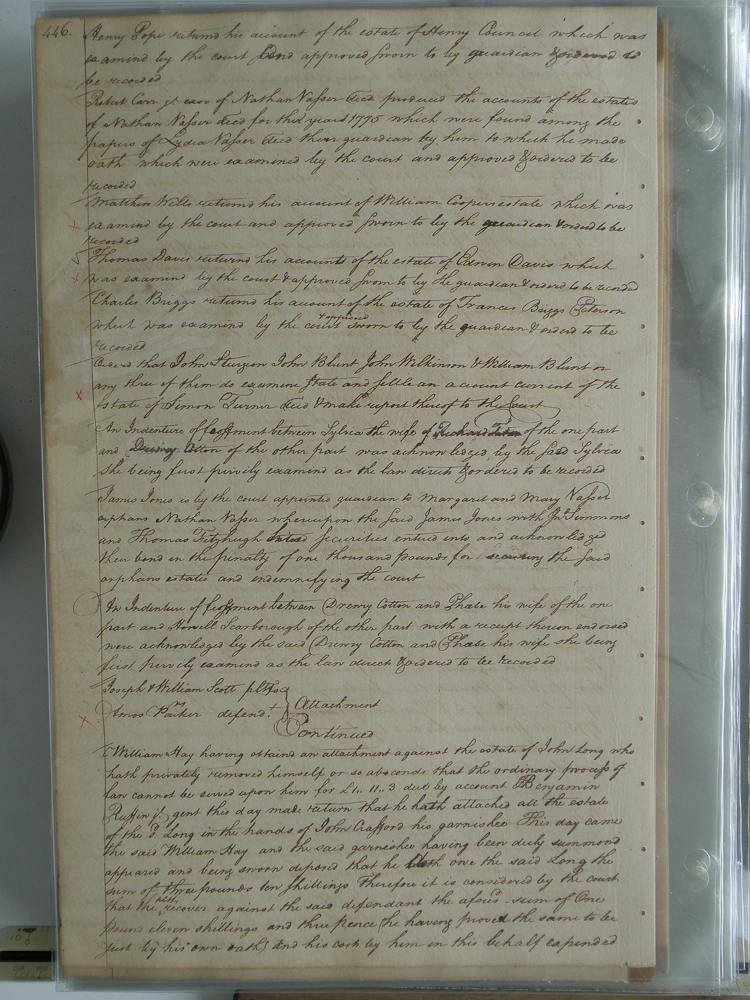 446.
Henry Pope returns his account of the estate of Henry Council which was
examind by the court and approved sworn to by guardian & ordered to
be recorded
Robert Carr jr. exor of Nathan Vasser decd produced the accounts of the estates
of Nathan Vasser decd for the year 1775 which were found among the
papers of Lydia Vasser decd their guardian by him to which he made
oath which were examined by the court and approved & ordered to be
recorded
Matthew Wills returns his account of William Coopers estate which was
examind by the court and approved sworn to by the guardian & orderd to be
recorded
Thomas Davis returns his accounts of the estate of Edwin Davis which
was examind by the court & approved sworn to by the guardian & orderd to be recorded
Charles Briggs returns his account of the estate of Francis Briggs Peterson
which was examind by the court & approved sworn to by the guardian & orderd to be
recorded
Orderd that John Sturgeon John Blunt John Wilkinson & William Blunt or
any three of them do examine state and settle an account current of the
estate of Simon Turner decd & make report thereof to the Court
An Indenture of feoffment between Sylvia the wife of of the one part
and Cotton of the other part was acknowledged by the said Sylvia
she being first privily examind as the law directs & orderd to be recorded
James Jones is by the court appointed guardian to Margaret and Mary Vasser
orphans Nathan Vasser whereupon the said James Jones with Jno. Simmons
and Thomas Fitzhugh securities enterd into and acknowledged
their bond in the penalty of one thousand pounds for securing the said
orphans estates and indemnifying the court
An Indenture of feoffment between Drewry Cotton and Phebe his wife of the one
part and Howell Scarborough of the other part with a receipt thereon endorsed
were acknowledged by the said Drewry Cotton and Phebe his wife she being
first privily examind as the law directs & ordered to be recorded
Joseph & William Scott pltfs
vs
Attachment
Amos Parker defendt.
Continued
William Hay having obtaind an attachment against the estate of John Long who
hath privately removed himself or so absconds that the ordinary process of
law cannot be served upon him for £1.. 11.. 3 due by account Benjamin
Ruffin jr. gent this day made return that he hath attached all the estate
of the sd. Long in the hands of John Crafford his garnishee This day came
the said William Hay and the said garnishee having been duly summond
appeard and being sworn deposd that he doth owe the said Long the
sum of three pounds ten shillings Therefore it is considered by the court
that the pltf. recover against the said defendant the aforesd. sum of One
pound eleven shillings and three pence (he having proved the same to be
just by his own oath) and his costs by him in this behalf expended